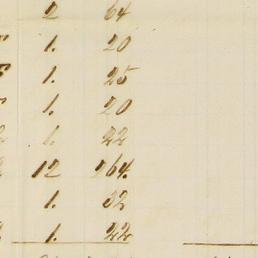 2 64
1. 20
1. 25
1. 20
1. 22
12 264
1. 32
1. 22